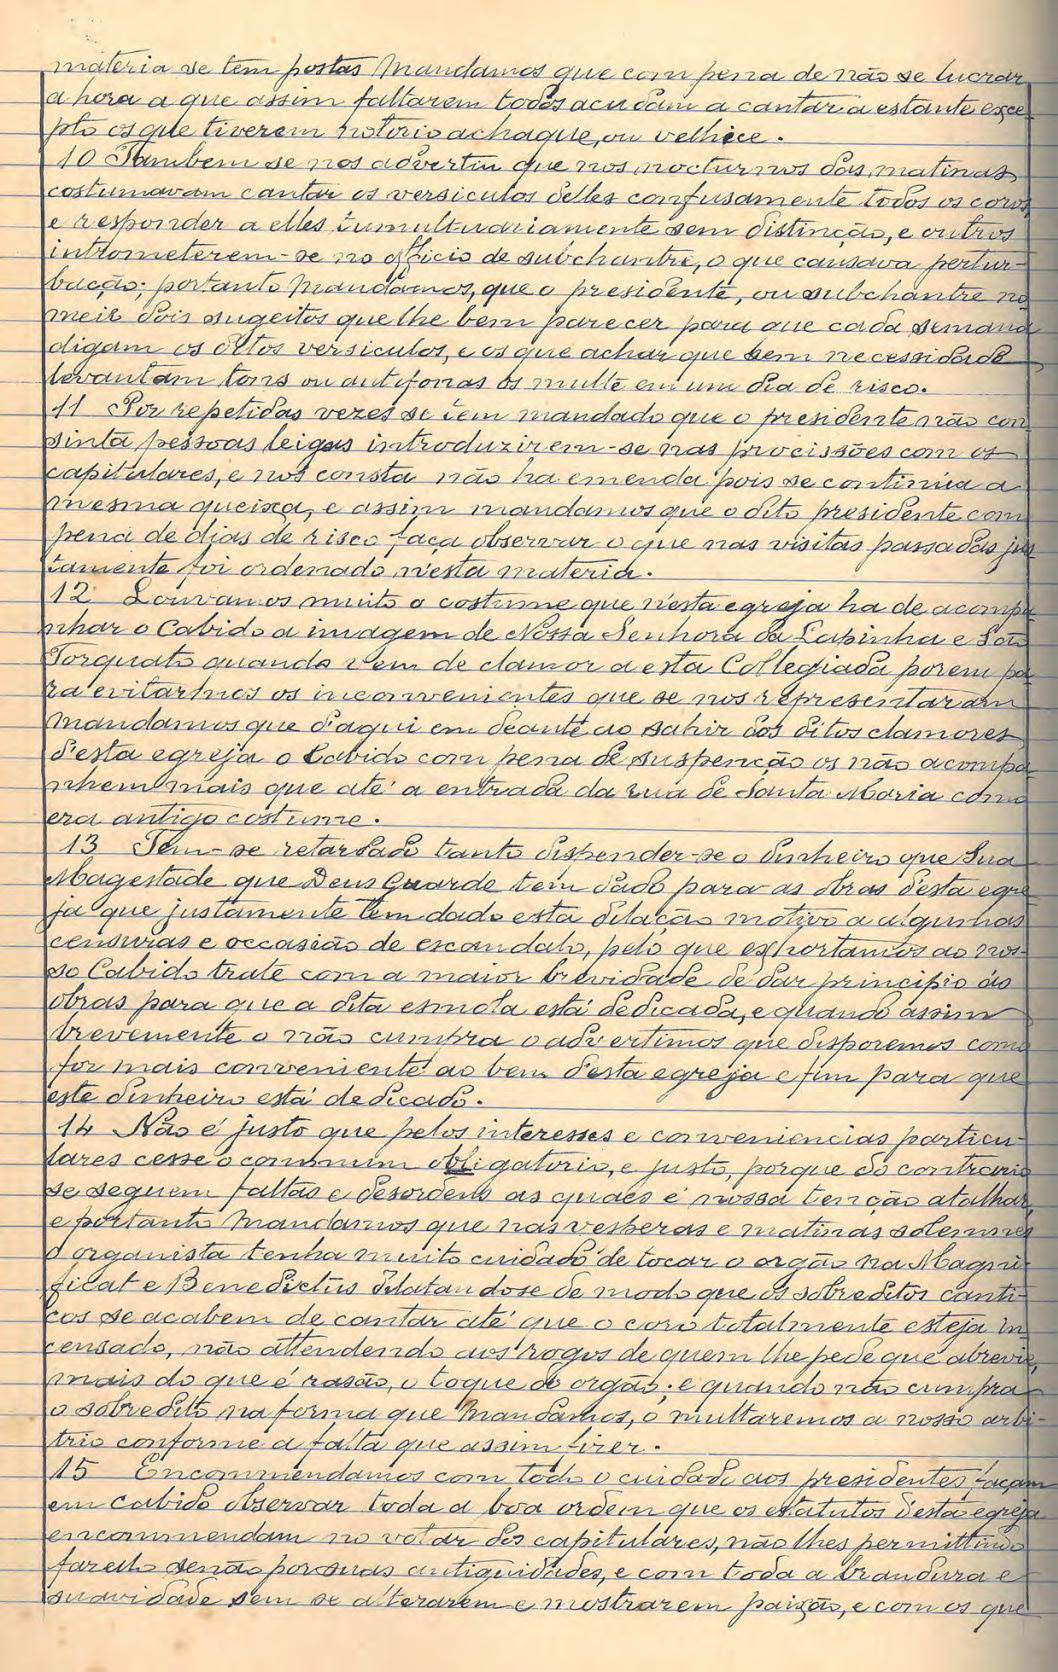 materia se tem postas Mandamos que com pena de não se lucrar
a hora a que assim faltarem todos acudam a cantar a estante exce
pto os que tiverem notorio achaque, ou velhice.
10 Tambem se nos advertiu que nos nocturnos das matinas
costumavam cantar os versiculos delles confusamente todos os coros
e responder a elles tumultuariamente sem distincção, e outros
intrometerem-se no officio de subchantre, o que causava pertur-
bação; portanto Mandamos, que o presidente, ou subchantre no
meie dois sugeitos que lhe bem parecer para que cada semana
digam os ditos versiculos, e os que achar que sem necessidade
levantam tons ou antifonas os multe em um dia de risco.
11 Por repetidas vezes se tem mandado que o presidente não con
sinta pessoas leigas introduzirem-se nas procissões com os
capitulares, e nos consta não ha emenda pois se continúa a
mesma queixa, e assim mandamos que o dito presidente com
pena de dias de risco faça observar o que nas visitas passadas jus
tamente foi ordenado n'esta materia.
12 Louvamos muito o costume que n'esta egreja ha de acompa
nhar o Cabido a imagem de Nossa Senhora da Lapinha e São
Torquato quando vem de clamor a esta Collegiada porem pa
ra evitarmos os inconvenientes que se nos representaram
Mandamos que d'aqui em deante ao sahir dos ditos clamores
d'esta egreja o Cabido com pena de suspenção os não acompa
nhem mais que até a entrada da rua de Santa Maria como
era antigo costume.
13 Tem-se retardado tanto dispender-se o dinheiro que Sua
Magestade que Deus Guarde tem dado para as obras d'esta egre
ja que justamente tem dado esta dilação motivo a algumas
censuras e occasião de escandalo, pelo que exhortamos ao nos-
so Cabido trate com a maior brevidade de dar principio ás
obras para que a dita esmola está dedicada, e quando assim
brevemente o não cumpra o advertimos que disporemos como
for mais conveniente ao bem d'esta egreja e fim para que
este dinheiro está dedicado.
14 Não é justo que pelos interesses e conveniencias particu-
lares cesse o commum obligatorio, e justo, porque do contrario
se seguem faltas e desordens as quaes é nossa tenção atalhar,
e portanto Mandamos que nas vesperas e matinas solemnes
o organista tenha muito cuidado de tocar o orgão na Magni-
ficat e Benedictus dilatandose de modo que os sobreditos canti-
cos se acabem de cantar até que o coro totalmente esteja in
censado, não attendendo aos rogos de quem lhe pede que abrevie,
mais do que é rasão, o toque do orgão; e quando não cumpra
o sobredito na forma que Mandamos, o multaremos a nosso arbi-
trio conforme a falta que assim fizer.
15 Encommendamos com todo o cuidado aos presidentes façam
em cabido observar toda a boa ordem que os estatutos d'esta egreja
encommendam no votar dos capitulares, não lhes permittindo
fazello senão por suas antiguidades, e com toda a brandura e
suavidade sem se alterarem e mostrarem paixão, e com os que